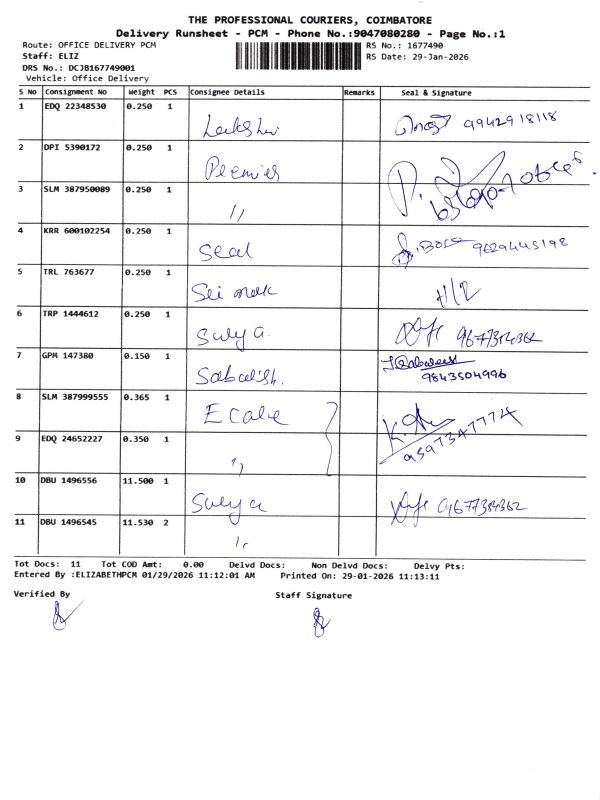 THE PROFESSIONAL COURIERS, COIMBATORE
Delivery Runsheet - PCM - Phone No.:9047080280 - Page No.:1
Route: OFFICE DELIVERY PCM RS No.: 1677490
Staff: ELIZ RS Date: 29-Jan-2026
DRS No.: DCJB167749001
Vehicle: Office Delivery
S No Consignment No Weight PCS Consignee Details Remarks Seal & Signature
1 EDQ 22348530 0.250 1 9942918118
2 DPI 5390172 0.250 1 Premier
3 SLM 387950089 0.250 1 ,,
4 KRR 600102254 0.250 1 Seal 9629445198
5 TRL 763677 0.250 1
6 TRP 1444612 0.250 1 Surya 9677384362
7 GPM 147380 0.150 1 Sabarish. 9843504996
8 SLM 387999555 0.365 1
9 EDQ 24652227 0.350 1 ,, 9597347774
10 DBU 1496556 11.500 1 Surya 9677384362
11 DBU 1496545 11.530 2 ,,
Tot Docs: 11 Tot COD Amt: 0.00 Delvd Docs: Non Delvd Docs: Delvy Pts:
Entered By :ELIZABETHPCM 01/29/2026 11:12:01 AM Printed On: 29-01-2026 11:13:11
Verified By Staff Signature